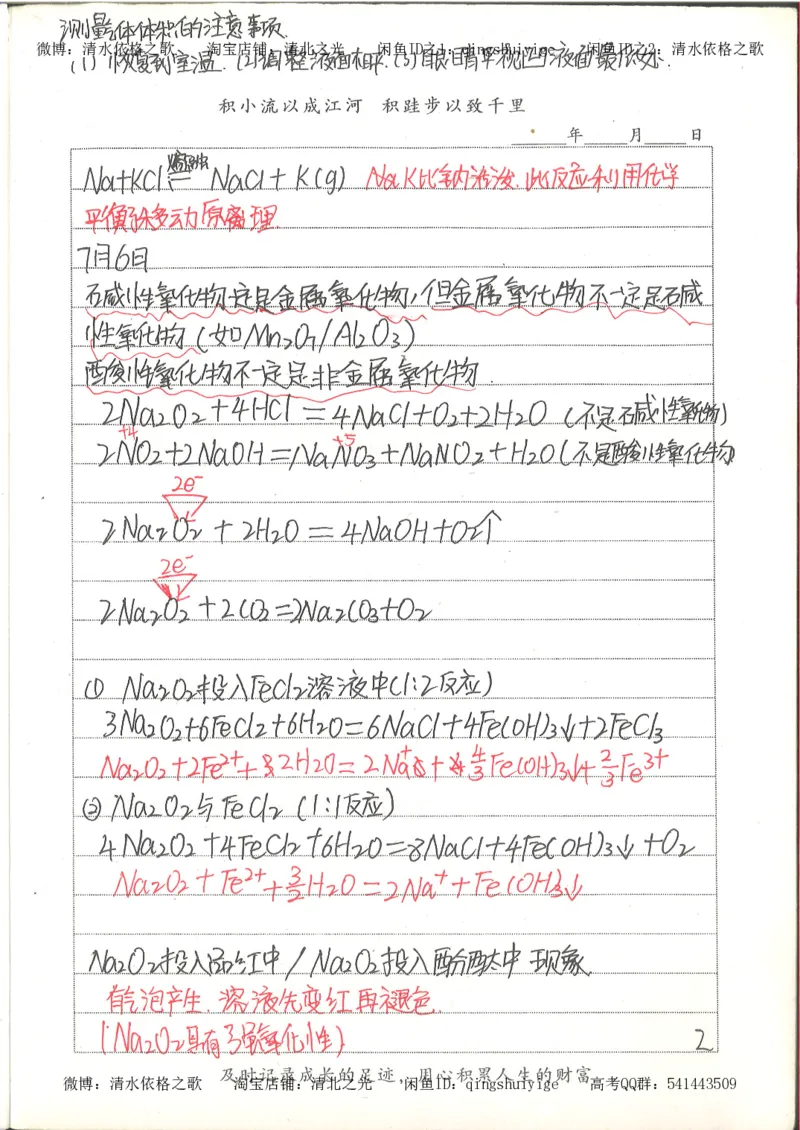 测量气体体积的注意事项.
微博：清水依格之歌 淘宝店铺：清北之光 闲鱼ID之1：qingshuiyige 闲鱼ID之2：清水依格之歌
(1) 恢复到室温. (2)调整液面相平.(3)眼睛平视凹液面最低处.
积小流以成江河 积跬步以致千里
年 月 日
Na+KCl = NaCl+K(g) Na K比钠活泼.此反应利用化学
平衡移动原理
7月6日
碱性氧化物一定是金属氧化物,但金属氧化物不一定是碱
性氧化物(如Mn2O7/Al2O3)
酸性氧化物不一定是非金属氧化物.
2Na2O2+4HCl=4NaCl+O2+2H2O (不是碱性氧化物)
+4 +5
2NO2+2NaOH=NaNO3+NaNO2+H2O(不是酸性氧化物)
2e-
2Na2O2+2H2O=4NaOH+O2↑
2e-
2Na2O2+2CO2=2Na2CO3+O2
① Na2O2投入FeCl2溶液中(1:2反应)
3Na2O2+6FeCl2+6H2O=6NaCl+4Fe(OH)3↓+2FeCl3
Na2O2+2Fe2++2H2O=2Na++4/3Fe(OH)3↓+2/3Fe3+
② Na2O2与FeCl2 (1:1反应)
4Na2O2+4FeCl2+6H2O=8NaCl+4Fe(OH)3↓+O2
Na2O2+Fe2++3/2H2O=2Na++Fe(OH)3↓
Na2O2投入品红中/Na2O2投入酚酞中 现象
有气泡产生.溶液先变红再褪色.
(Na2O2具有强氧化性)
2
及时记录成长的足迹，用心积累人生的财富
微博：清水依格之歌 淘宝店铺：清北之光 闲鱼ID：qingshuiyige 高考QQ群：541443509